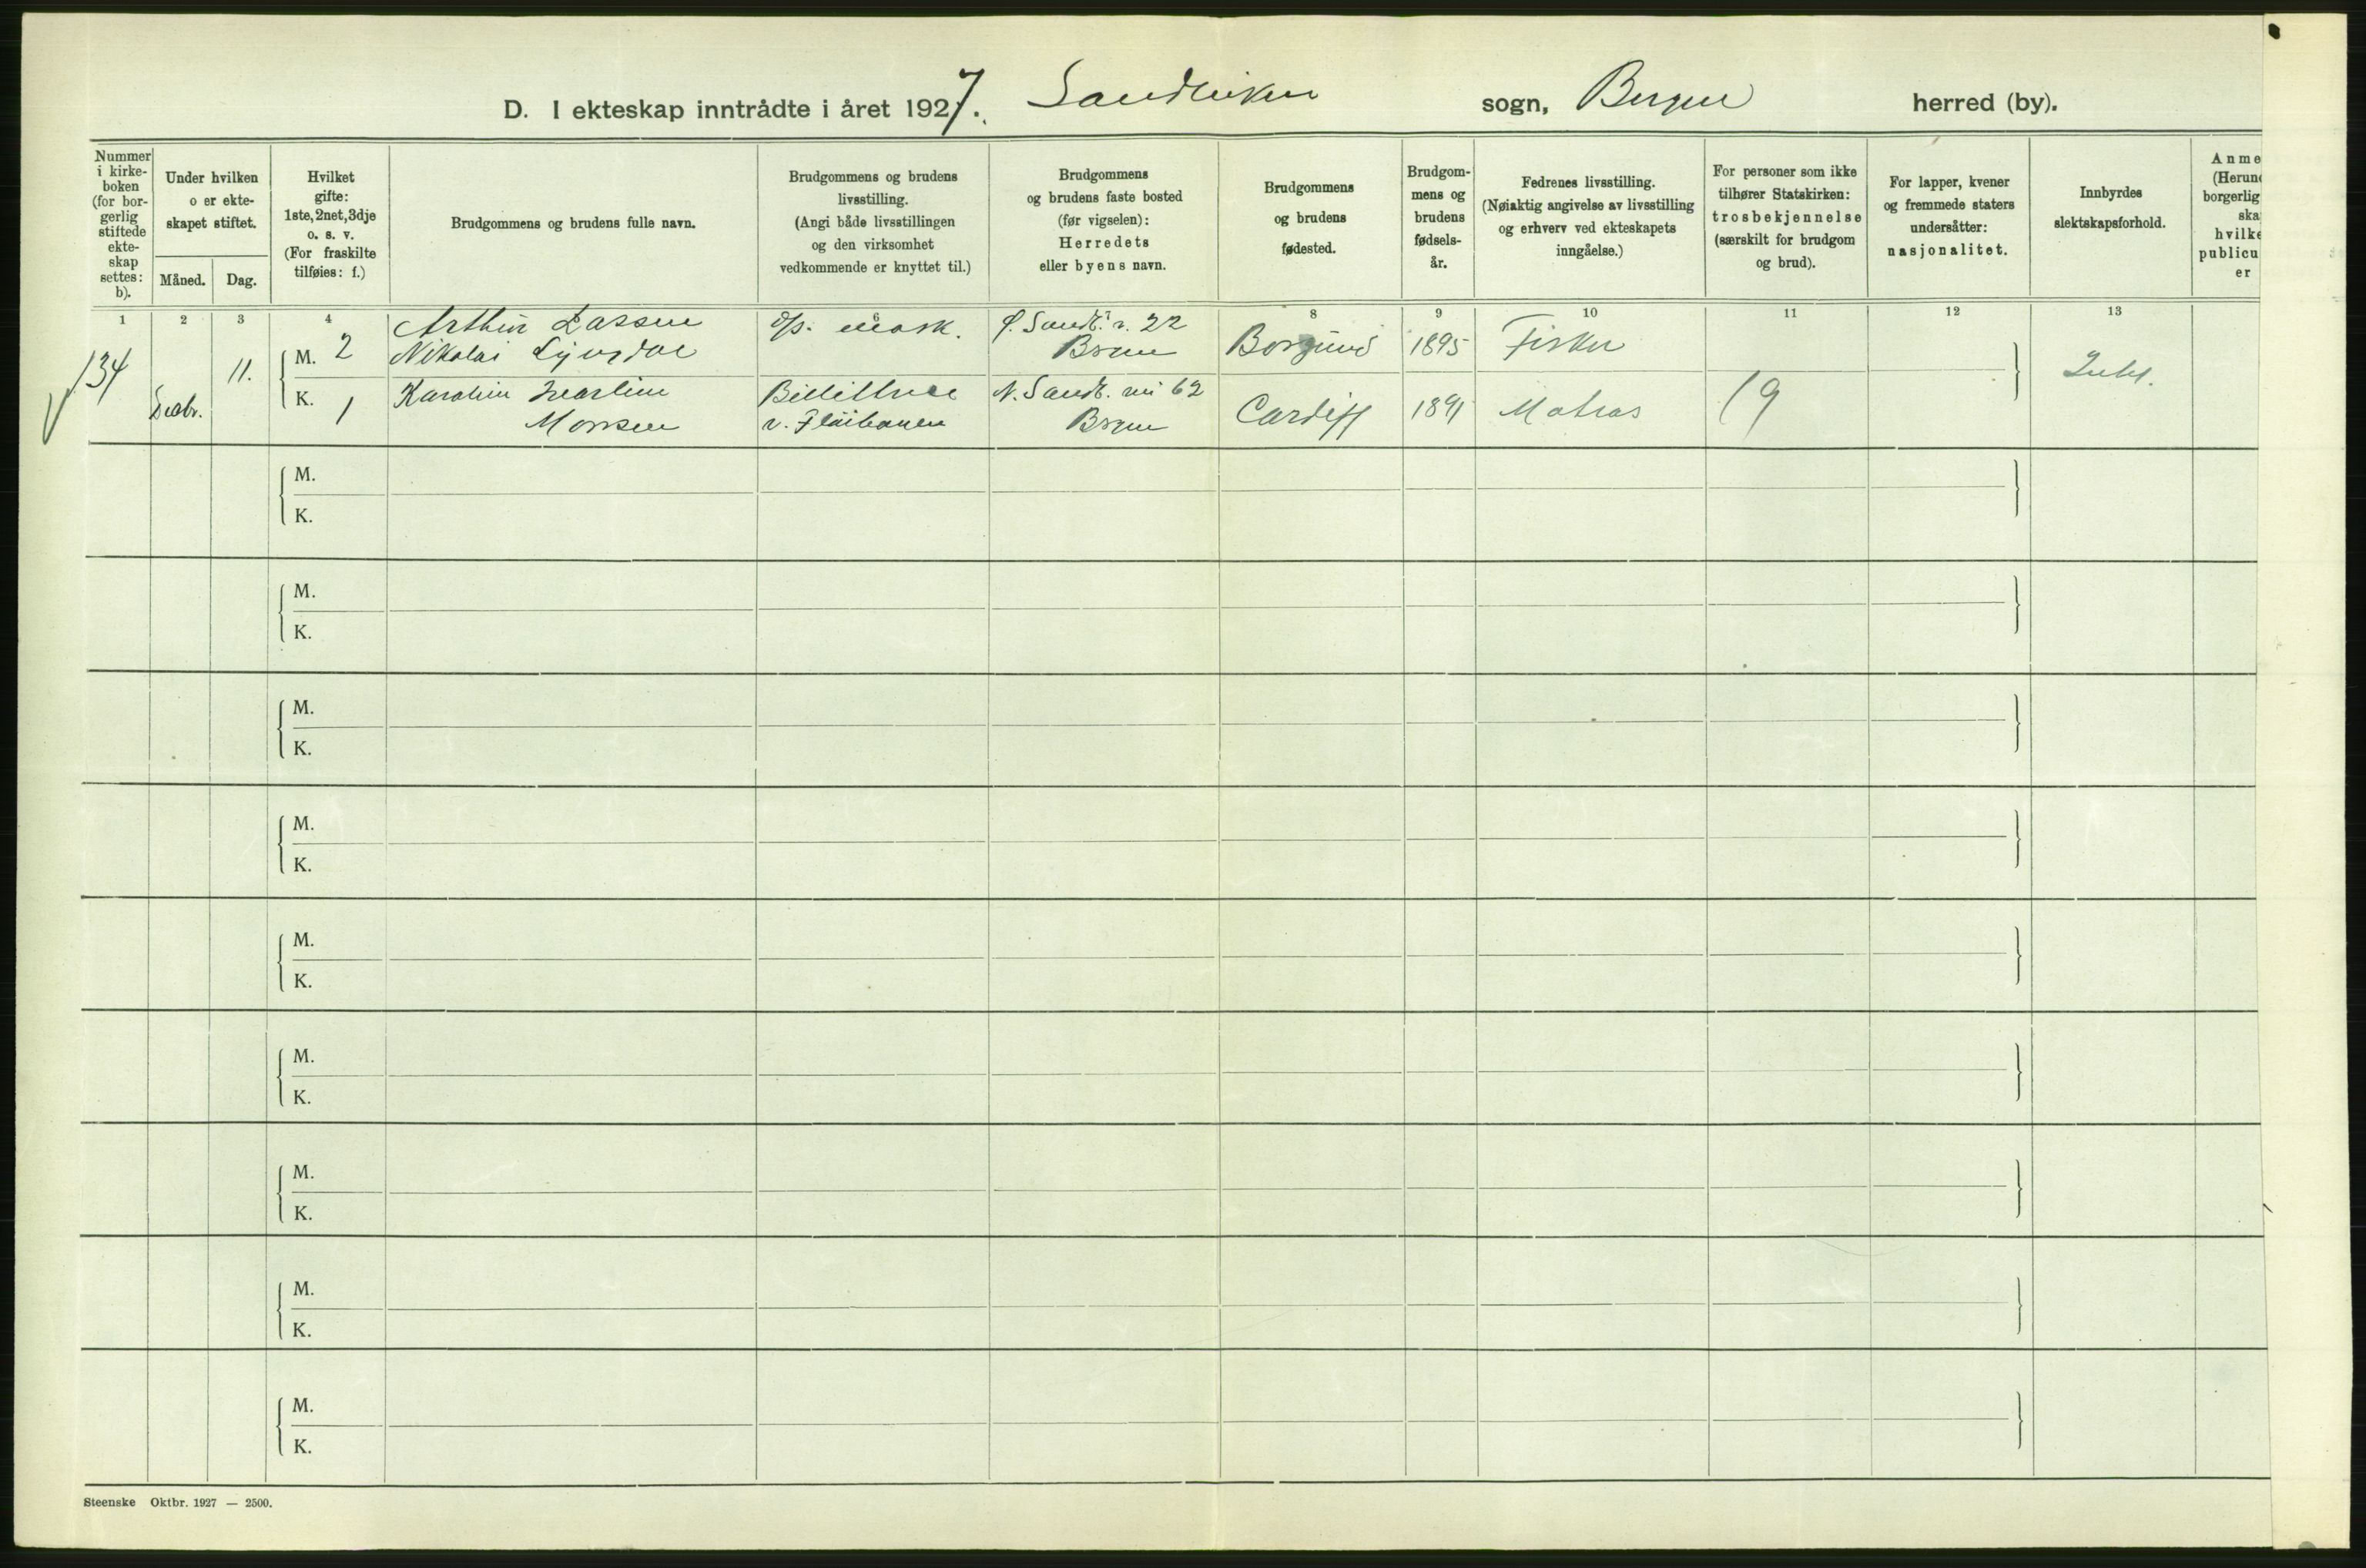 D. I ekteskap inntrådte i året 1927. Sandviken sogn, Bergen herred (by).
Nummer i kirke-boken (for bor-gerlig stiftede ekte-skap settes: b).
Under hvilken o er ekte-skapet stiftet.
Måned. Dag.
Hvilket gifte: 1ste, 2net, 3dje o. s. v. (For fraskilte tilføies: f.)
Brudgommens og brudens fulle navn.
Brudgommens og brudens livsstilling. (Angi både livsstillingen og den virksomhet vedkommende er knyttet til.)
Brudgommens og brudens faste bosted (før vigselen): Herredets eller byens navn.
Brudgommens og brudens fødested.
Brudgom-mens og brudens fødsels-år.
Fedrenes livsstilling. (Nøiaktig angivelse av livsstilling og erhverv ved ekteskapets inngåelse.)
For personer som ikke tilhører Statskirken: trosbekjennelse (særskilt for brudgom og brud).
For lapper, kvener og fremmede staters undersåtter: nasjonalitet.
Innbyrdes slektskapsforhold.
Anme
(Herun
borgerlig
ska
hvilke
publicu
er
1 2 3 4 8 9 10 11 12 13
134 11. M. 2 Arthur Lassen
Nikolai
mask.
Sandv. v. 22
Bergen
Borgund 1895 Fisker
K. 1 Karoline
Monsen
Billettrice
v. Fløibanen
N. Sandv. vei 62
Bergen
Cardiff 1891 Matros
M.
K.
M.
K.
M.
K.
M.
K.
M.
K.
M.
K.
M.
K.
M.
K.
M.
K.
Steenske Oktbr. 1927 — 2500.